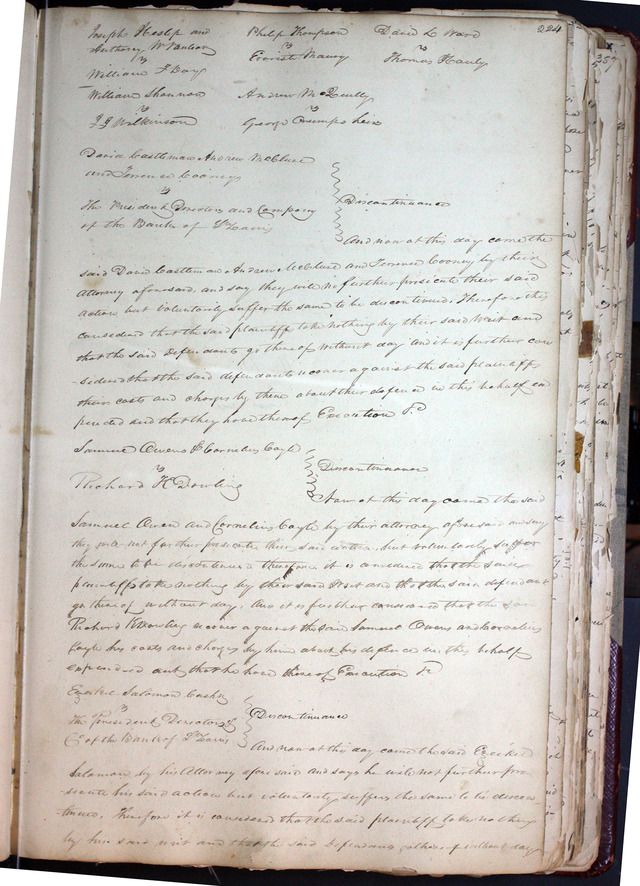 224
Joseph Heslip and
Anthony W Vanlear
vs
William F Gay
William Shannon
vs
J J Wilkinson
Philip Thompson
vs
Evariste Maury
Andrew McQuilly
vs
George Crumpshein
David L Ward
vs
Thomas Hanly
David Eastleman Andrew McClure
and Terrence Cooneys
vs
The President Directors and Company
of the Bank of St Louis
Discontinuance
And now at this day come the
said David Eastleman Andrew McClure and Terence Cooney by their
Attorney aforesaid, and say they will no further prosecute their said
action but voluntarily suffer the same to be discontinued. Therefore it is
considered that the said plaintiff take nothing by their said Writ and
that the said Defendants go thereof without day and it is further con
-sidered that the said defendants recover against the said plaintiffs
their costs and charges by them about their defence in this behalf ex
pended and that they have thereof Execution &c
Samuel Owens & Cornelius Coyle
vs
Richard K Dowling
Discontinuance
Now at this day come the said
Samuel Owen and Cornelius Coyle by their attorney aforesaid and say
they will not further prosecute their said action, but voluntarily suffer
the same to be discontinued therefore it is considered that the said
plaintiff take nothing by their said Writ and that the said defendant
go thereof without day, And it is further considered that the said
Richard K Dowling recover against the said Samuel Owens and Cornelius
Coyle his costs and charges by him about his defence in this behalf
expended and that he have thereof Execution &c
Ezekiel Salomon
vs
The President Directors &
Co of the Bank of St Louis
Discontinuance
And now at this day come the said Ezekiel
Salomon by his Attorney aforesaid and says he will not further pro-
secute his said action but voluntarily suffers the same to be discon-
tinued, Therefore it is considered that the said plaintiff take nothing
by his said writ and that the said Defendants go thereof without day